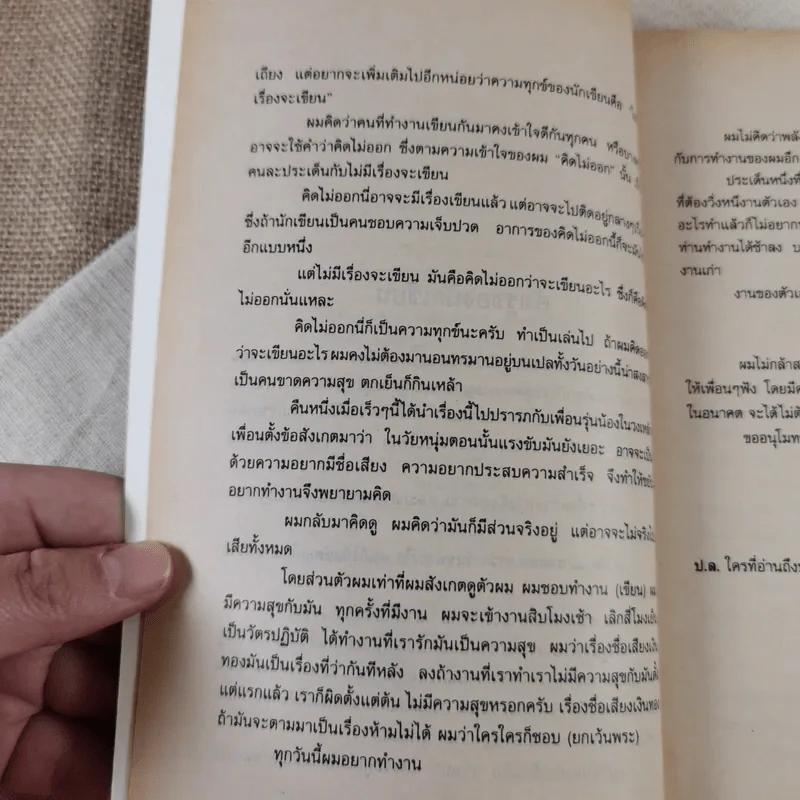 เถียง แต่อยากจะเพิ่มเติมไปอีกหน่อยว่าความทุกข์ของนักเขียนคือ
เรื่องจะเขียน"
ผมคิดว่าคนที่ทำงานเขียนกันมาคงเข้าใจดีกันทุกคน หรือบาง
อาจจะใช้คำว่าคิดไม่ออก ซึ่งตามความเข้าใจของผม "คิดไม่ออก" นั้น
คนละประเด็นกับไม่มีเรื่องจะเขียน
คิดไม่ออกนี่อาจจะมีเรื่องเขียนแล้ว แต่อาจจะไปติดอยู่กลางๆ
ซึ่งถ้านักเขียนเป็นคนชอบความเจ็บปวด อาการของคิดไม่ออกนี้ก็จะ
อีกแบบหนึ่ง
แต่ไม่มีเรื่องจะเขียน มันคือคิดไม่ออกว่าจะเขียนอะไร ซึ่งก็คือ
ไม่ออกนั่นแหละ
คิดไม่ออกนี่ก็เป็นความทุกข์นะครับ ทำเป็นเล่นไป ถ้าผมคิดออก
ว่าจะเขียนอะไร ผมคงไม่ต้องมานอนทรมานอยู่บนเปลทั้งวันอย่างนี้น่าสงสาร
เป็นคนขาดความสุข ตกเย็นก็กินเหล้า
คืนหนึ่งเมื่อเร็วๆนี้ได้นำเรื่องนี้ไปปรารภกับเพื่อนรุ่นน้องในวงเหล้า
เพื่อนตั้งข้อสังเกตมาว่า ในวัยหนุ่มตอนนั้นแรงขับมันยังเยอะ อาจจะเป็น
ด้วยความอยากมีชื่อเสียง ความอยากประสบความสำเร็จ จึงทำให้
อยากทำงานจึงพยายามคิด
ผมกลับมาคิดดู ผมคิดว่ามันก็มีส่วนจริงอยู่ แต่อาจจะไม่จริง
เสียทั้งหมด
โดยส่วนตัวผมเท่าที่ผมสังเกตดูตัวผม ผมชอบทำงาน (เขียน)
มีความสุขกับมัน ทุกครั้งที่มีงาน ผมจะเข้างานสิบโมงเช้า เลิกสี่โมงเย็น
เป็นวัตรปฏิบัติ ได้ทำงานที่เรารักมันเป็นความสุข ผมว่าเรื่องชื่อเสียงเงิน
ทองมันเป็นเรื่องที่ว่ากันทีหลัง ลงถ้างานที่เราทำเราไม่มีความสุขกับมันตั้ง
แต่แรกแล้ว เราก็ผิดตั้งแต่ต้น ไม่มีความสุขหรอกครับ เรื่องชื่อเสียงเงินทอง
ถ้ามันจะตามมาเป็นเรื่องห้ามไม่ได้ ผมว่าใครใครก็ชอบ (ยกเว้นพระ)
ทุกวันนี้ผมอยากทำงาน
ผมไม่คิดว่าพลัง
กับการทำงานของผมอีก
ประเด็นหนึ่งที่
ที่ต้องวิ่งหนีงานตัวเอง
อะไรทำแล้วก็ไม่อยาก
ท่านทำงานได้ช้าลง
งานเก่า
งานของตัวเอง
ผมไม่กล้า
ให้เพื่อนๆฟัง โดยมี
ในอนาคต จะได้ไม่
ขออนุโมทนา
ป.ล. ใครที่อ่านถึง